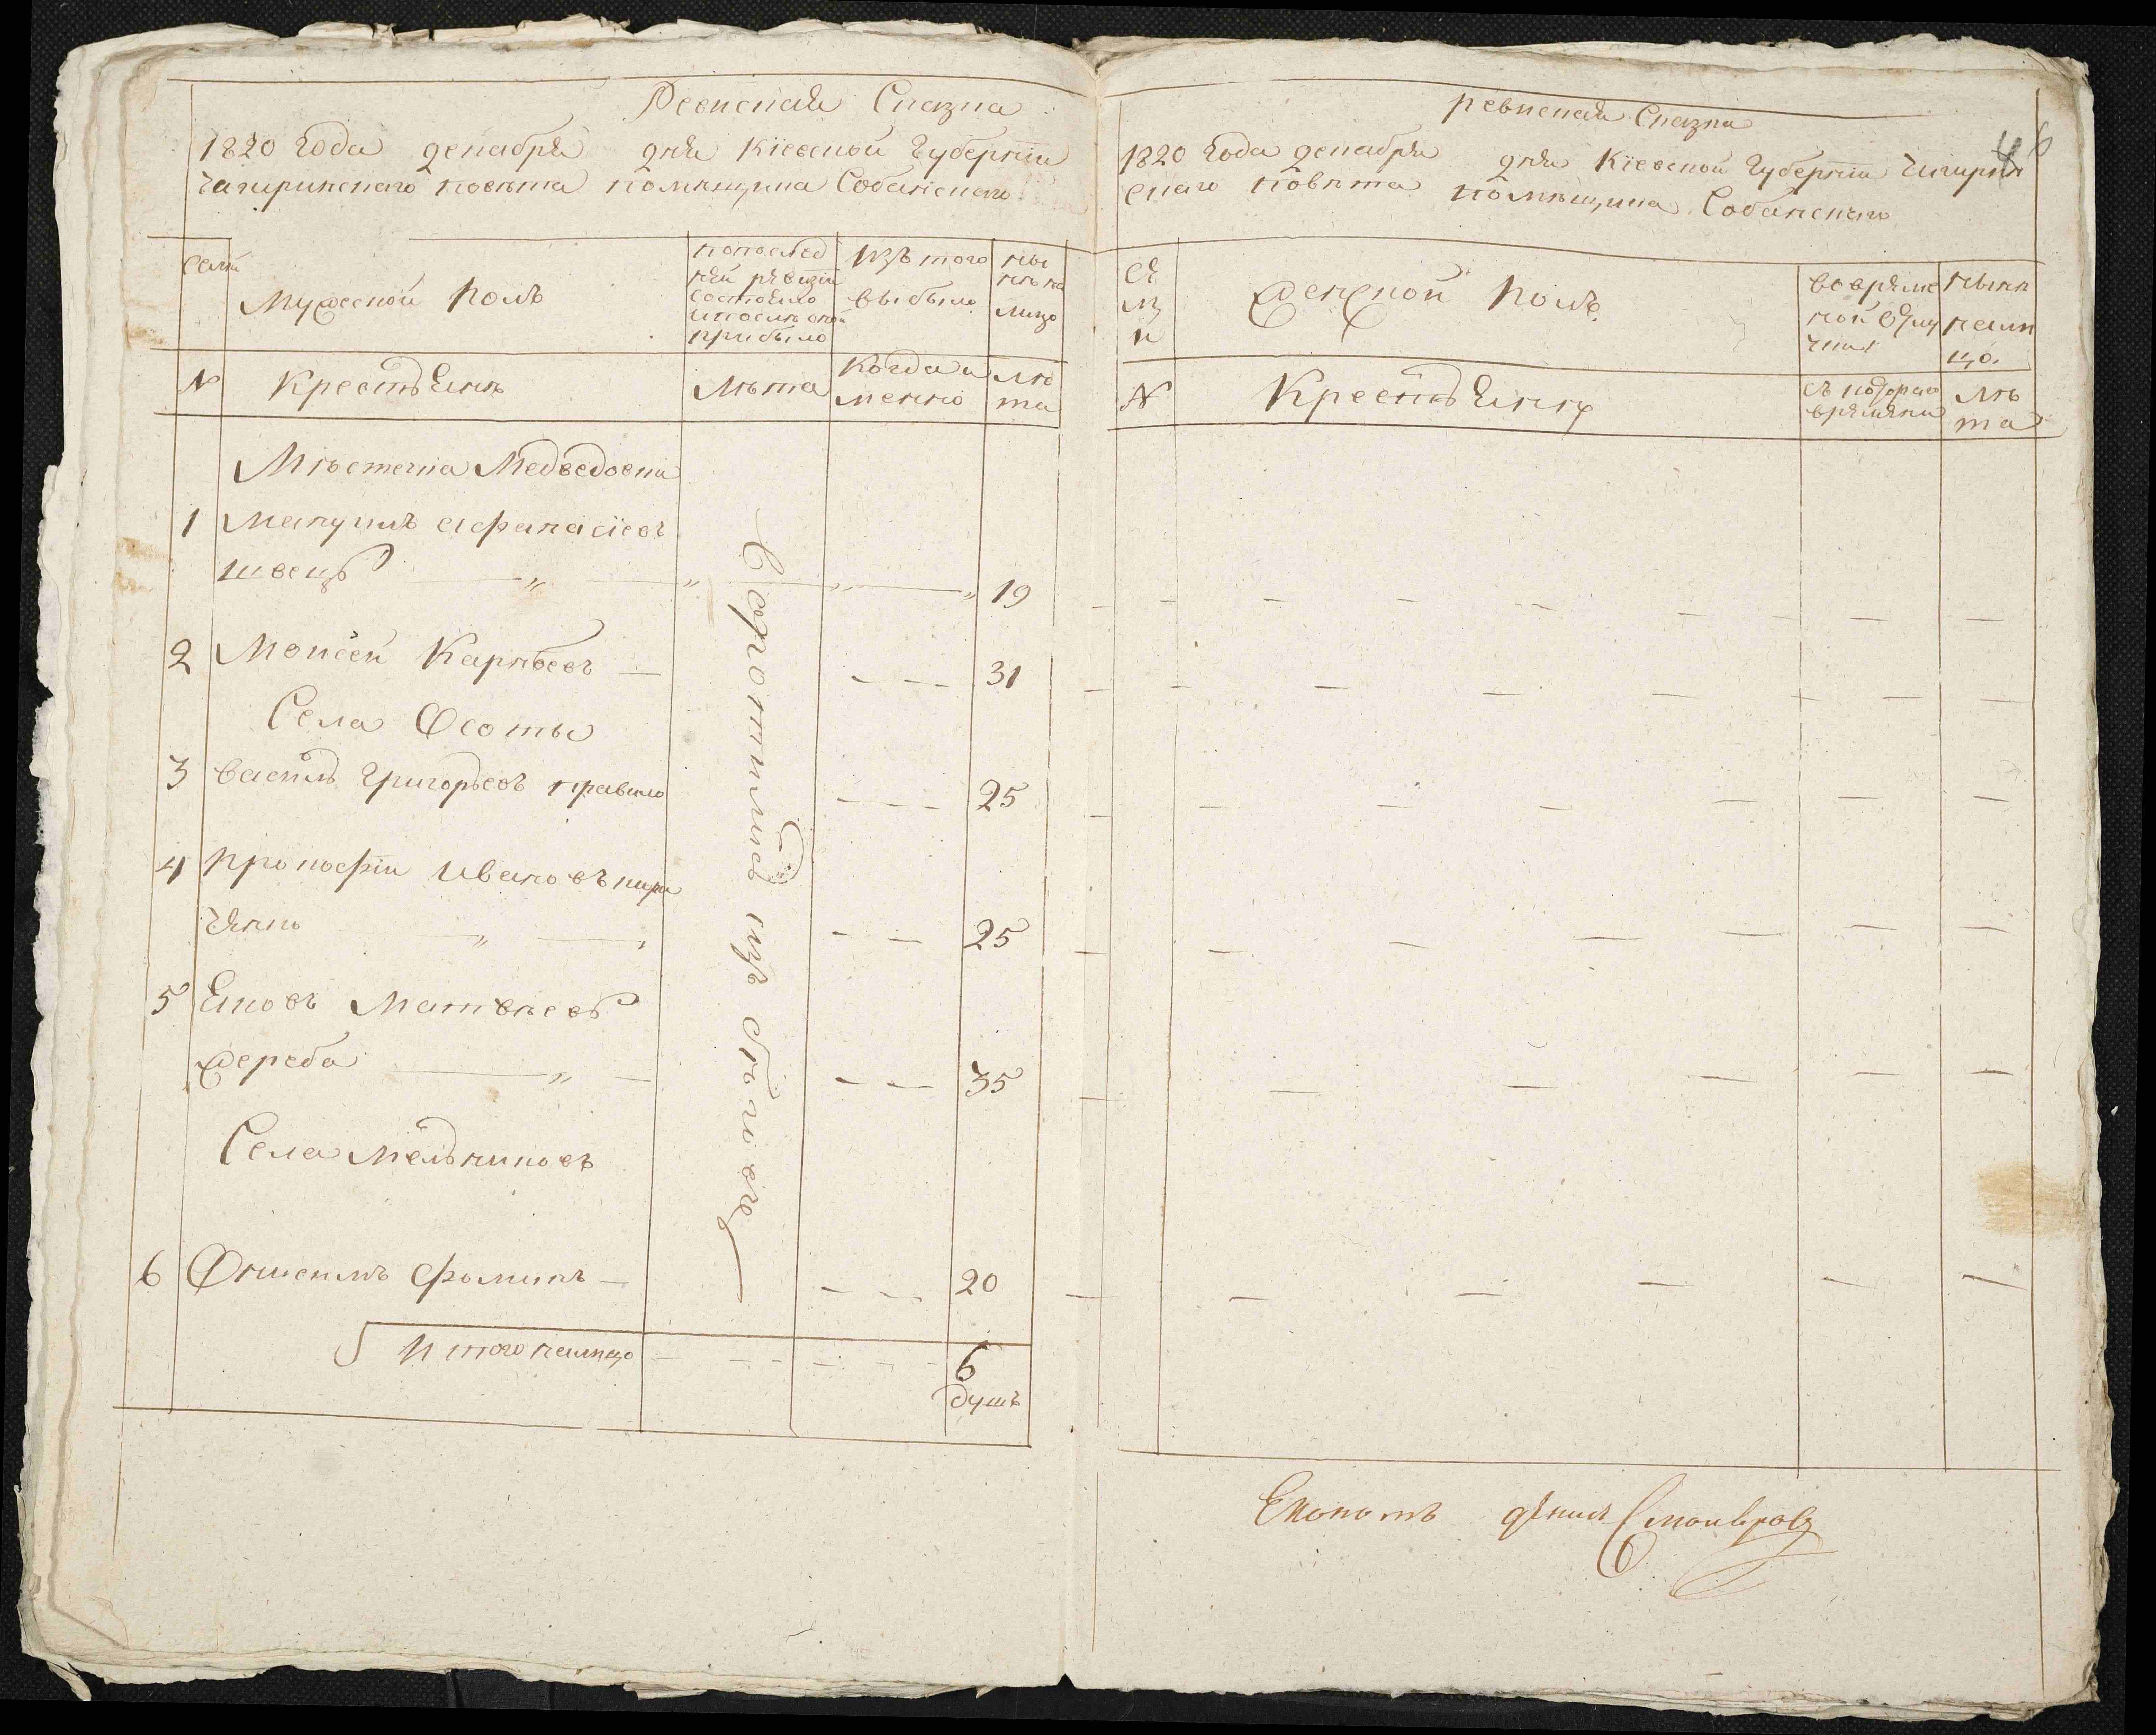 Ревиская Сказка
1820 года декабря дня Кіевской Губерніи
Чигиринскаго повѣта помѣщика Собанскаго
семи
Мужеской полъ
попослед
ней ревизіи
состояло
ипослѣ оной
прибыло
изъ того
выбыло
ны
нѣ на
лицо
№
Крестьянѣ
лѣта
когда и
менно
лѣ
та
Мѣстечка Медведовки
1 Макуилъ Афанасіевъ
швецъ 19
2 Моисей Карнѣевъ 31
Села Осоты
3 Василь Григорьевъ правило 25
4 Прокофіи Ивановъ
25
5 Яковъ Матвѣевъ
Жереба 35
Села Мельниковъ
6 Онисимъ Фоминъ 20
Возротились изъ бѣговъ
Итого налицо 6
душъ
ревиская Сказка
6
1820 года декабря дня Кіевской Губерніи Чигирин
скаго повѣта помѣщика Собанскаго
се
м
и
Женской полъ
вовряме
ной отлу
чки
нынѣ
нали
цо.
№
Крестьянѣ
съ котораго
времяни
лѣ
та
Економъ